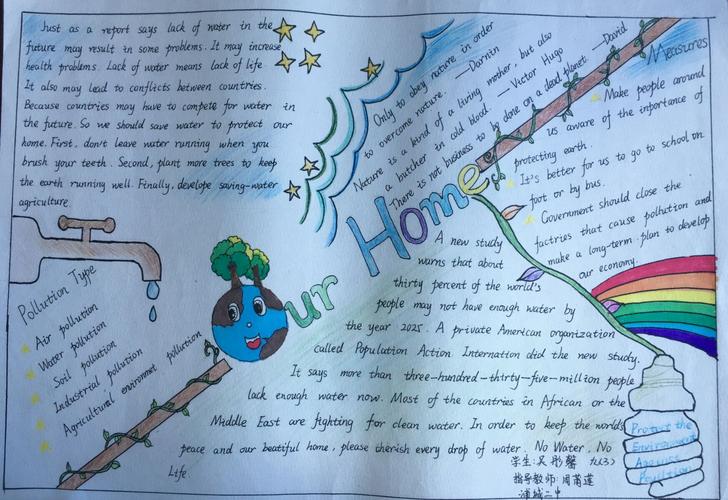 Just as a report says lack of water in the
future may result in some problems. It may increase
health problems. Lack of water means lack of life.
It also may lead to conflicts between countries.
Because countries may have to compete for water in
the future. So we should save water to protect our
home. First, don't leave water running when you
brush your teeth. Second, plant more trees to keep
the earth running well. Finally, develope saving-water
agriculture.
Only to obey nature in order
to overcome nature. —Darwin
Nature is a kind of a living mother, but also
a butcher in cold blood. — Victor Hugo
There is not business to be done on a dead planet —David
Measures
Make people around
us aware of the importance of
protecting earth.
It's better for us to go to school on
foot or by bus.
Government should close the
factries that cause pollution and
make a long-term plan to develop
our economy.
Our Home
Pollution Type
Air pollution
Water pollution
Soil pollution
Industrial pollution
Agricultural environmet pollution
A new study
warns that about
thirty percent of the world's
people may not have enough water by
the year 2025. A private American organization
called Population Action Internation did the new study.
It says more than three-hundred-thirty-five-million people
lack enough water now. Most of the countries in African or the
Middle East are fighting for clean water. In order to keep the world's
peace and our beatiful home, please therish every drop of water. No Water, No
Life.
Protect the
Environment
Against
Pollution
学生:吴彤馨 九(3)
指导教师:周莆莲
浦城二中